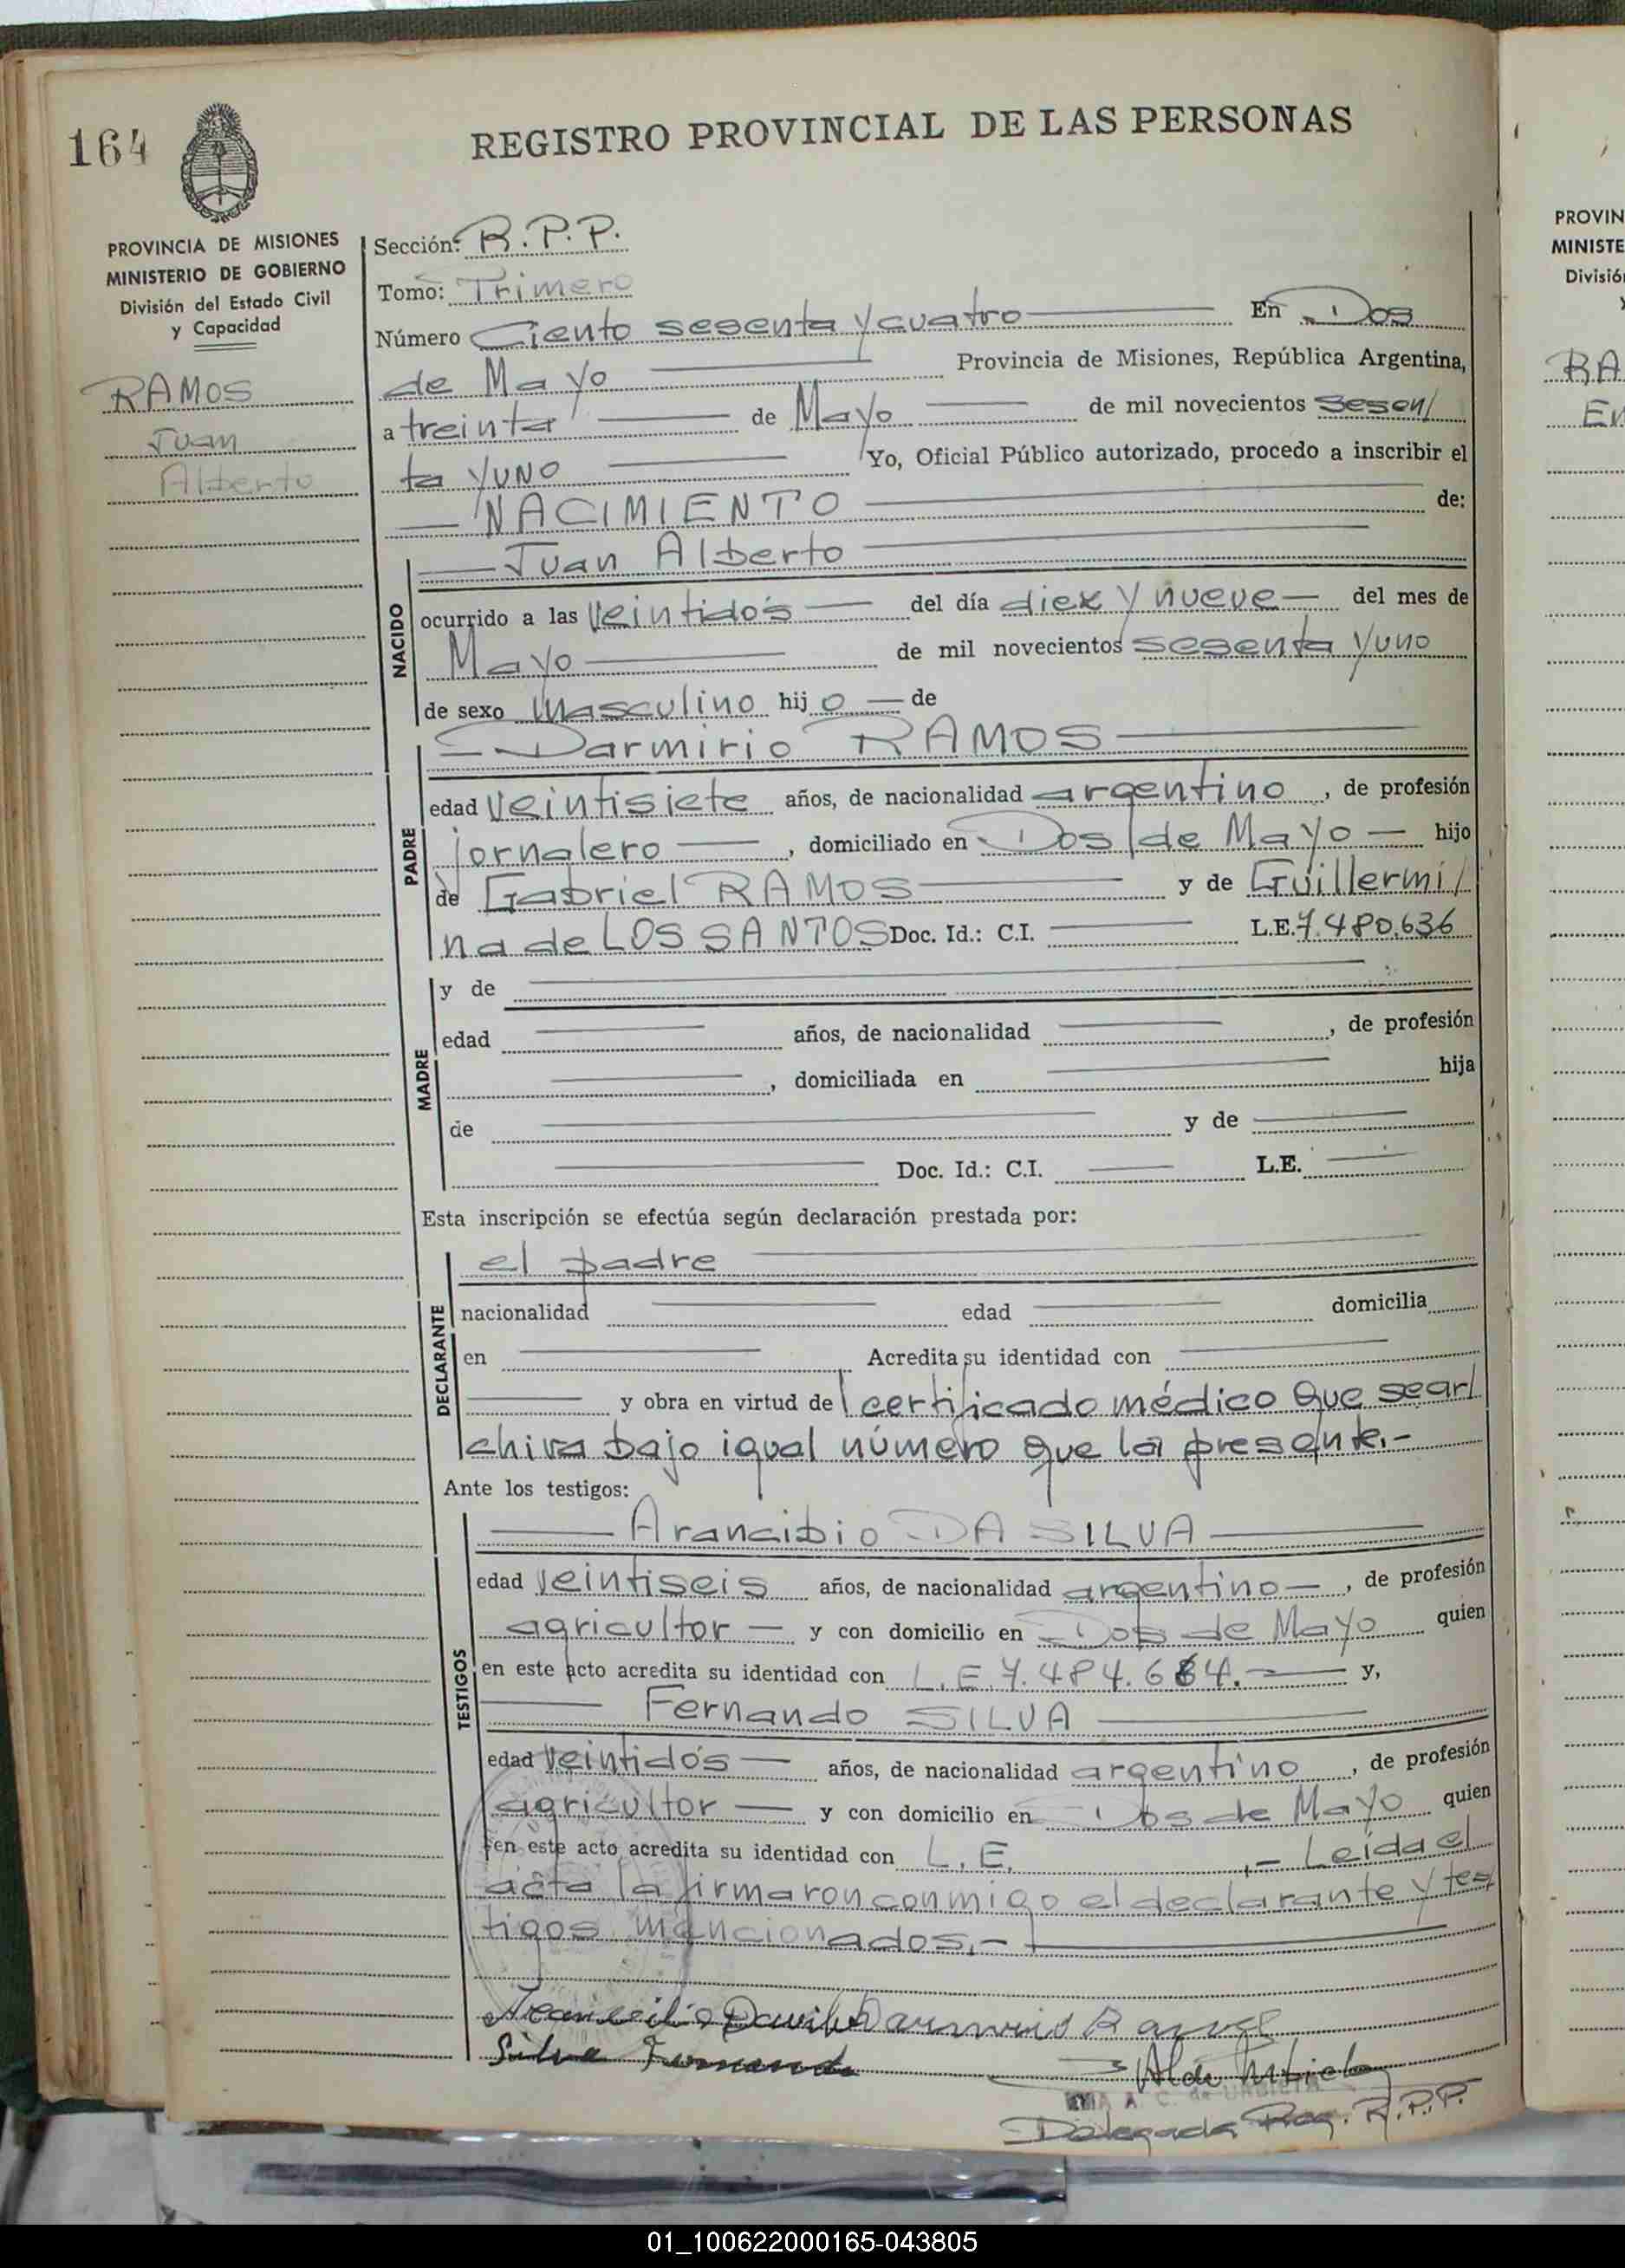 164
REGISTRO PROVINCIAL DE LAS PERSONAS
PROVINCIA DE MISIONES
MINISTERIO DE GOBIERNO
División del Estado Civil
y Capacidad
RAMOS
Juan
Alberto
Sección: R.P.P.
Tomo: Primero
Número Ciento sesenta y cuatro En Dos
de Mayo Provincia de Misiones, República Argentina,
a treinta de Mayo de mil novecientos sesen/
ta y uno Yo, Oficial Público autorizado, procedo a inscribir el
NACIMIENTO de:
NACIDO
Juan Alberto
ocurrido a las veintidós del día diez y nueve del mes de
Mayo de mil novecientos sesenta y uno
de sexo masculino hij o de
PADRE
Darmirio RAMOS
edad veintisiete años, de nacionalidad argentino, de profesión
jornalero, domiciliado en Dos de Mayo hijo
de Gabriel RAMOS y de Guillermi/
na de LOS SANTOS Doc. Id.: C.I. L.E. 7.480.636
MADRE
y de
edad años, de nacionalidad , de profesión
, domiciliada en hija
de y de
Doc. Id.: C.I. L.E.
Esta inscripción se efectúa según declaración prestada por:
DECLARANTE
el padre
nacionalidad edad domicilia
en Acredita su identidad con
y obra en virtud del certificado médico que se ar/
chiva bajo igual número que la presente.-
Ante los testigos:
TESTIGOS
Arancibio DA SILVA
edad veintiseis años, de nacionalidad argentino, de profesión
agricultor y con domicilio en Dos de Mayo quien
en este acto acredita su identidad con L.E. 7.484.684. y,
Fernando SILVA
edad veintidós años, de nacionalidad argentino, de profesión
agricultor y con domicilio en Dos de Mayo quien
en este acto acredita su identidad con L.E. ,- Leída el
acta la firmaron conmigo el declarante y tes
tigos mencionados.-
Darmirio Ramos
Silva Fernando
Delegada Reg. R.P.P.
PROVIN
MINISTE
Divisió
y
RA
01_100622000165-043805